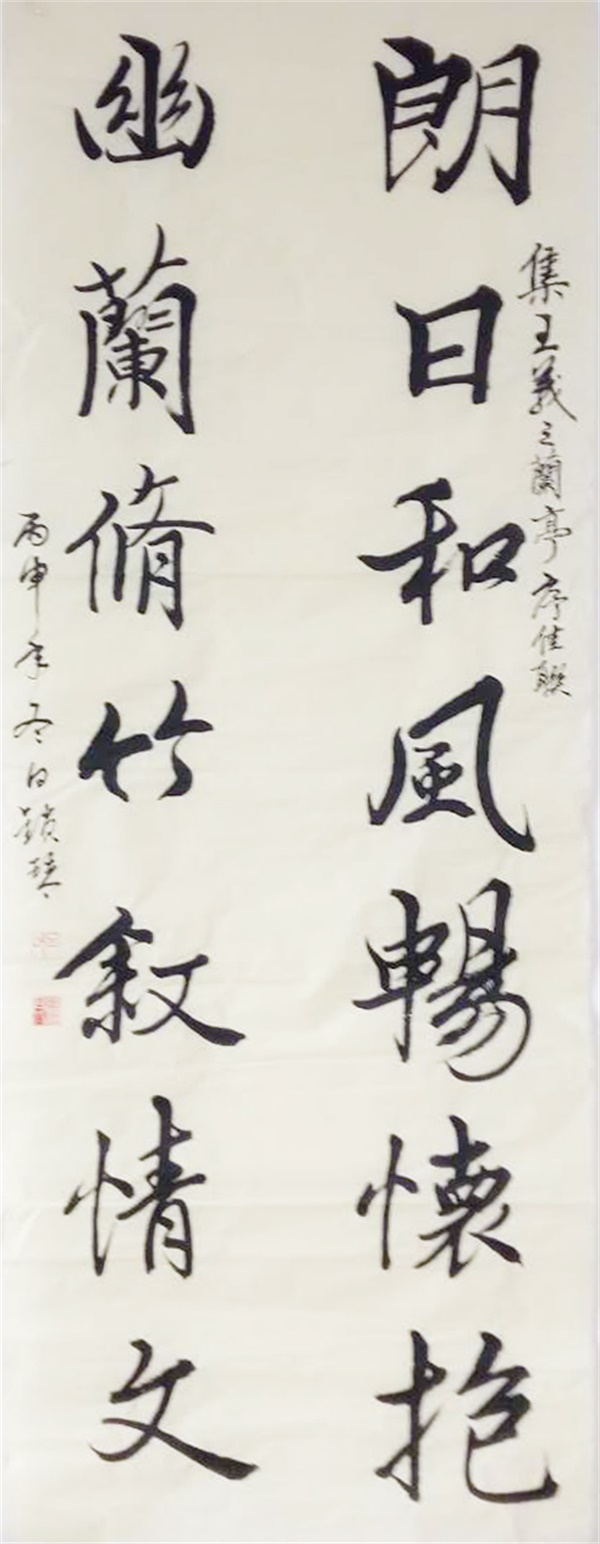 集王羲之蘭亭序佳聯
朗日和風暢懷抱
幽蘭脩竹敘情文
丙申年冬日鎖琴